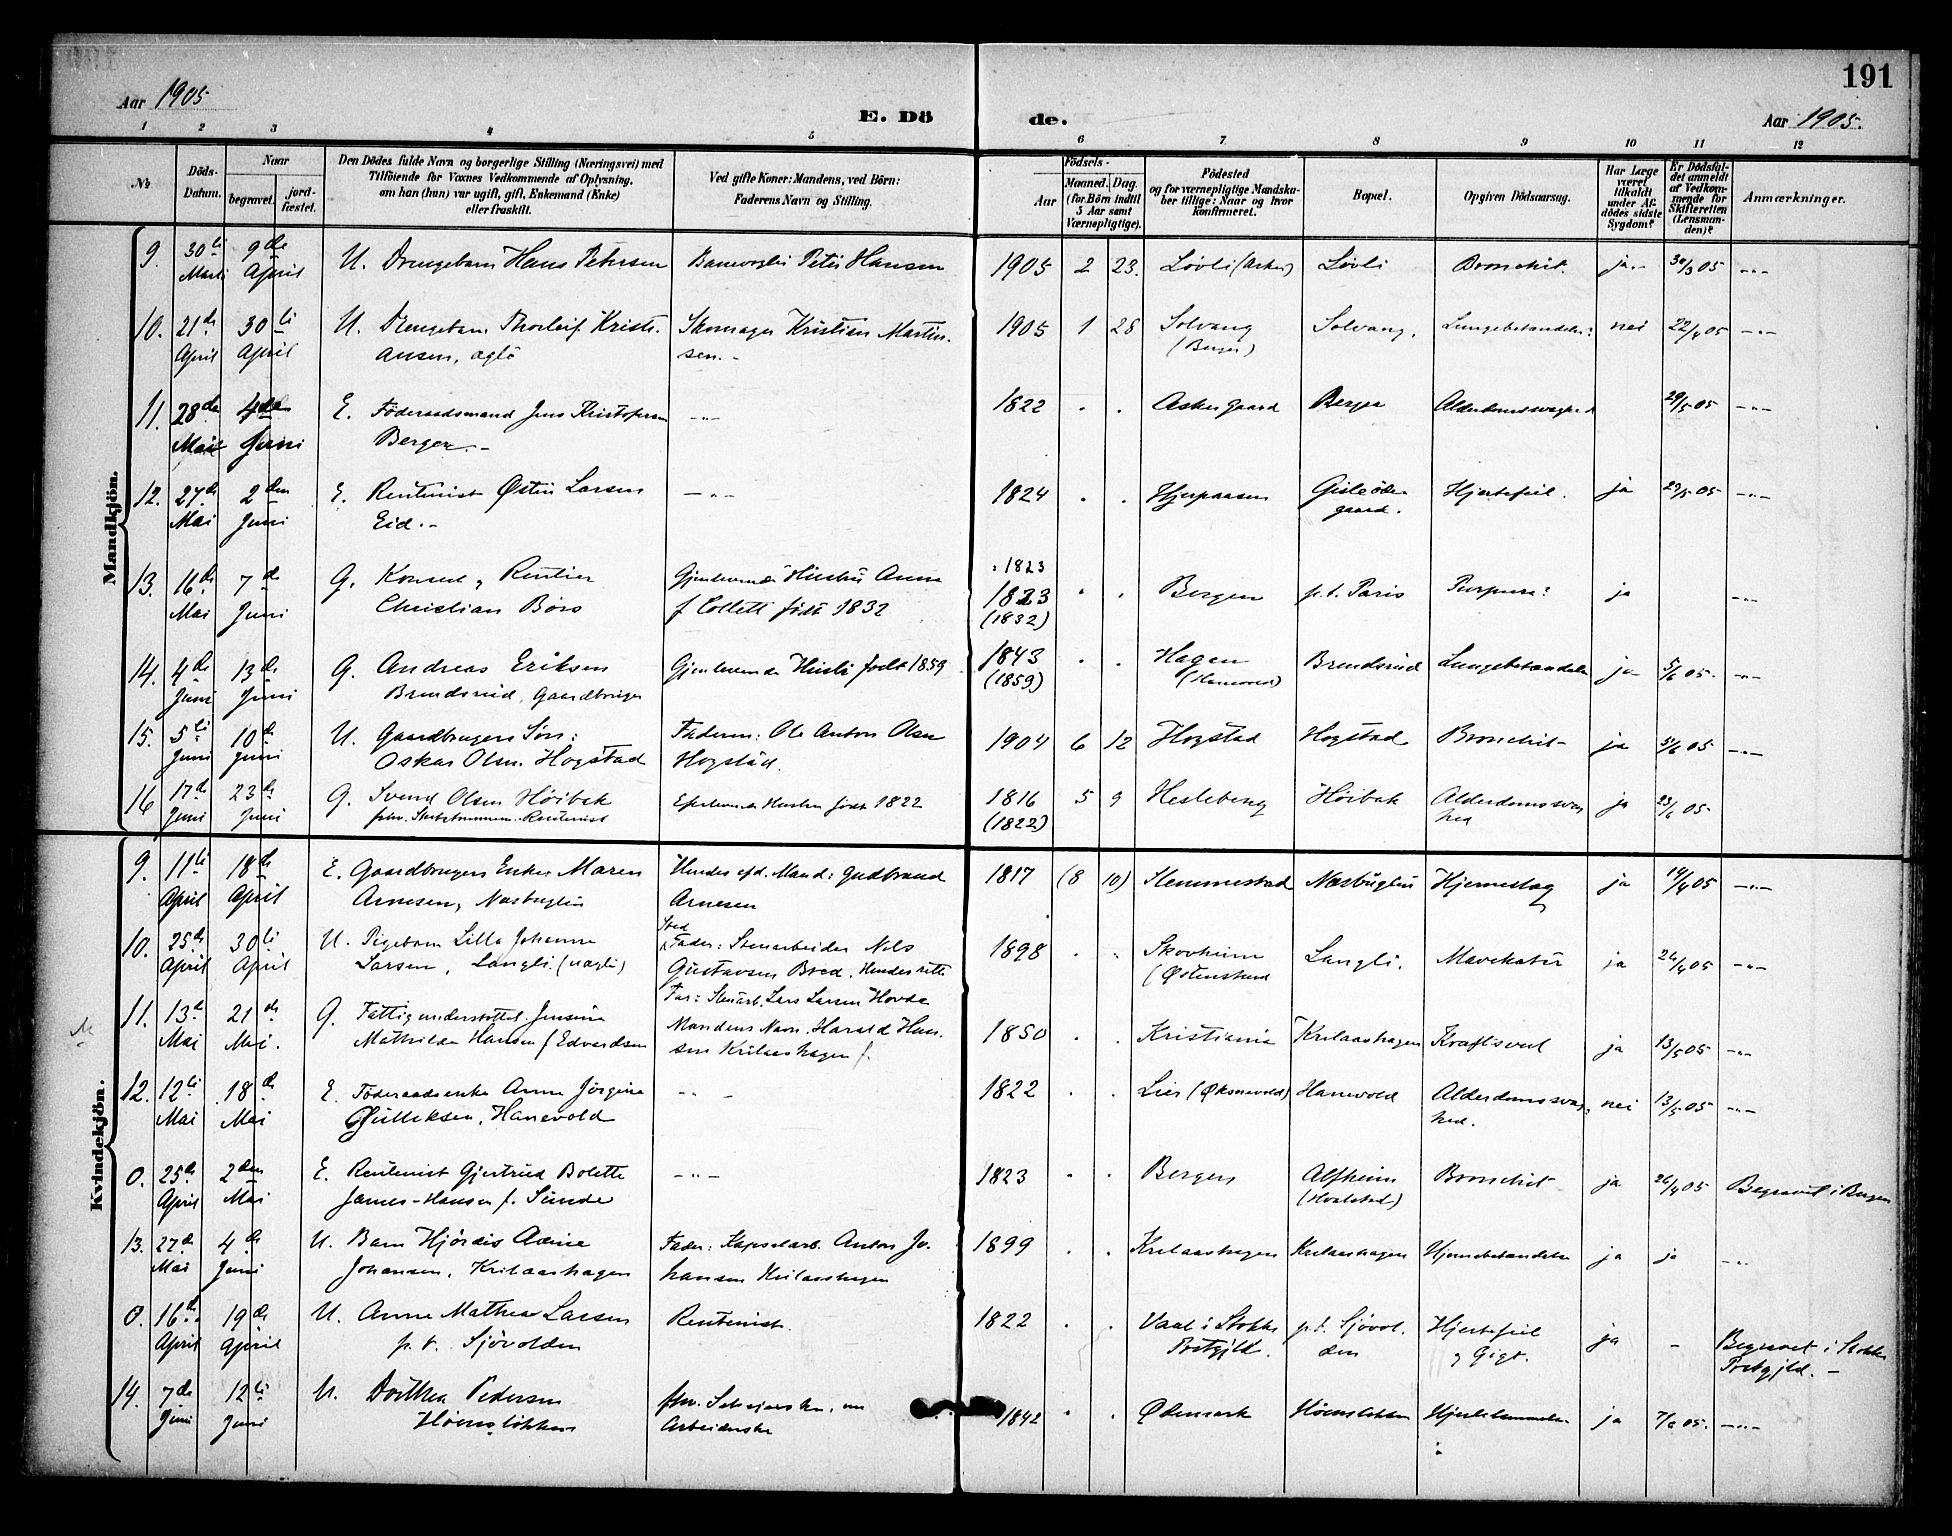 191
Aar 1905
E. Dö
de.
Aar 1905.
1 2 3 4 5 6 7 8 9 10 11 12
No
Döds-
Datum.
Naar
begravet.
jord-
fæstet.
Den Dödes fulde Navn og borgerlige Stilling (Næringsvei) med
Tilföiende for Voxnes Vedkommende af Oplysning,
om han (hun) var ugift, gift, Enkemand (Enke)
eller fraskilt.
Ved gifte Koner: Mandens, ved Börn:
Faderens Navn og Stilling.
Födsels-
Aar
Maaned. Dag.
(for Børn indtil
5 Aar samt
Værnepligtige).
Födested
og for værnepligtige Mandska-
ber tillige: Naar og hvor
konfirmeret.
Bopæl.
Opgiven Dödsaarsag.
Har Læge
været
tilkaldt
under Af-
dödes sidste
Sygdom?
Er Dödsfal-
det anmeldt
af Vedkom-
mende for
Skifteretten
(Lensman-
den)?
Anmærkninger.
Mandkjön.
9. 30ti 9de U. Drengebarn Hans Petersen 1905 2 23. Løvli (Asker) Løvli Bronchit. ja 30/3 05 -"-
Marts April Peter Hansen
10. 21de 30ti U. Drengebarn Thorleif Kristi- Skomager Kristian Martin- 1905 1 28 Solvang Solvang. nei 22/4 05 -"-
April April ansen, sen. - (Berger)
11. 28de 4de E. Föderaadsmand Jens Kristofersen -"- 1822 . . Asker gaard Berger 29/5 05 -"-
Mai Juni Berger. -
12. 27de 2den E. Rentenist Østen Larsen -"- 1824 . . Hjertefeil. ja 29/5 05 -"-
Mai Juni Eid. - gaard.
13. 16de 7de G. Konsul, Rentier Anna 1823
Mai Juni Christian Börs f Collett født 1832 1823 Bergen p.t. Paris Purpura? ja -"-
(1832)
14. 4de 13de G. Andreas Eriksen født 1859 1843 . . Hagen ja 5/6 05. -"-
Juni Juni Gaardbruger (1859)
15. 5te 10de U. Gaardbrugers Søn: Faderen: Ole Anton Olsen 1904 6 12 Hogstad Hogstad Bronchit ja 5/6 05 -"-
Juni Juni Oskar Olsen Hogstad Hogstad.
16 17de 23de G. Svend Olsen Höibak født 1822 1816 5 9 Hesleberg Höibak Alderdomssvag ja 23/6 05
Juni Juni Rentenist (1822) hed
Kvindekjön.
9. 11te 18de E. Gaardbrugers Enke Maren Hendes afd. Mand: Gudbrand 1817 (8 10) Slemmestad Næsbuglen Hjerneslag ja 19/4 05 -"-
April April Arnesen, Næsbuglen Arnesen
10. 25de 30te U. Pigebarn Lilla Johanne Sted 1898 . . Skovheim Langli. Mavekatar ja 26/4 05 -"-
April April Larsen, Langli. Fader: Stenarbeider Nils (Østenstad
Gustavsen Bred. Hendes rette
Far: Stenarb. Lars Larsen Hovda
11. 13de 21de G. Fattigunderstöttet Jensine Mandens Navn. Harald Han- 1850 . . Kristiania Krilaashagen ja 13/5 05 -"-
Mai Mai. Mathilde Hansen f Edvardsen sen Krilaashagen
12. 12te 18de E. Föderaadsenke Anne Jörgine -"- 1822 . . Lier Hanevold Alderdomssvag- nei 13/5 05 -"-
Mai Mai Gulliksen, Hanevold hed.
0. 25de 2den E. Rentenist Gjertrud Bolette -"- 1823 . . Bergen Alfheim Bronchit ja 26/4 05 Begravet i Bergen
April Mai James-Hansen f. Sunde (Hvalstad)
13. 27de 4de U. Barn Hjördis Fader: Kapselarb. Anton Jo- 1899 . . Krilaashagen Krilaashagen Hjernebetændelse ja ja -"-
Mai Juni Johansen, Krilaashagen hansen Krilaashagen
0. 16de 19de U. Anne Mathea Larsen Rentenist. 1822 . . i Stokke p.t. Sjövol- Hjertefeil ja - Begravet i Stokke
April April p.t. Sjövolden Prstgjld. den og Gigt. Prstgjld. -
14. 7de 12te U. Dorthea Pedersen 1842 . . ja 7/6 05. -"-
Juni Juni Höenslökken Arbeiderske